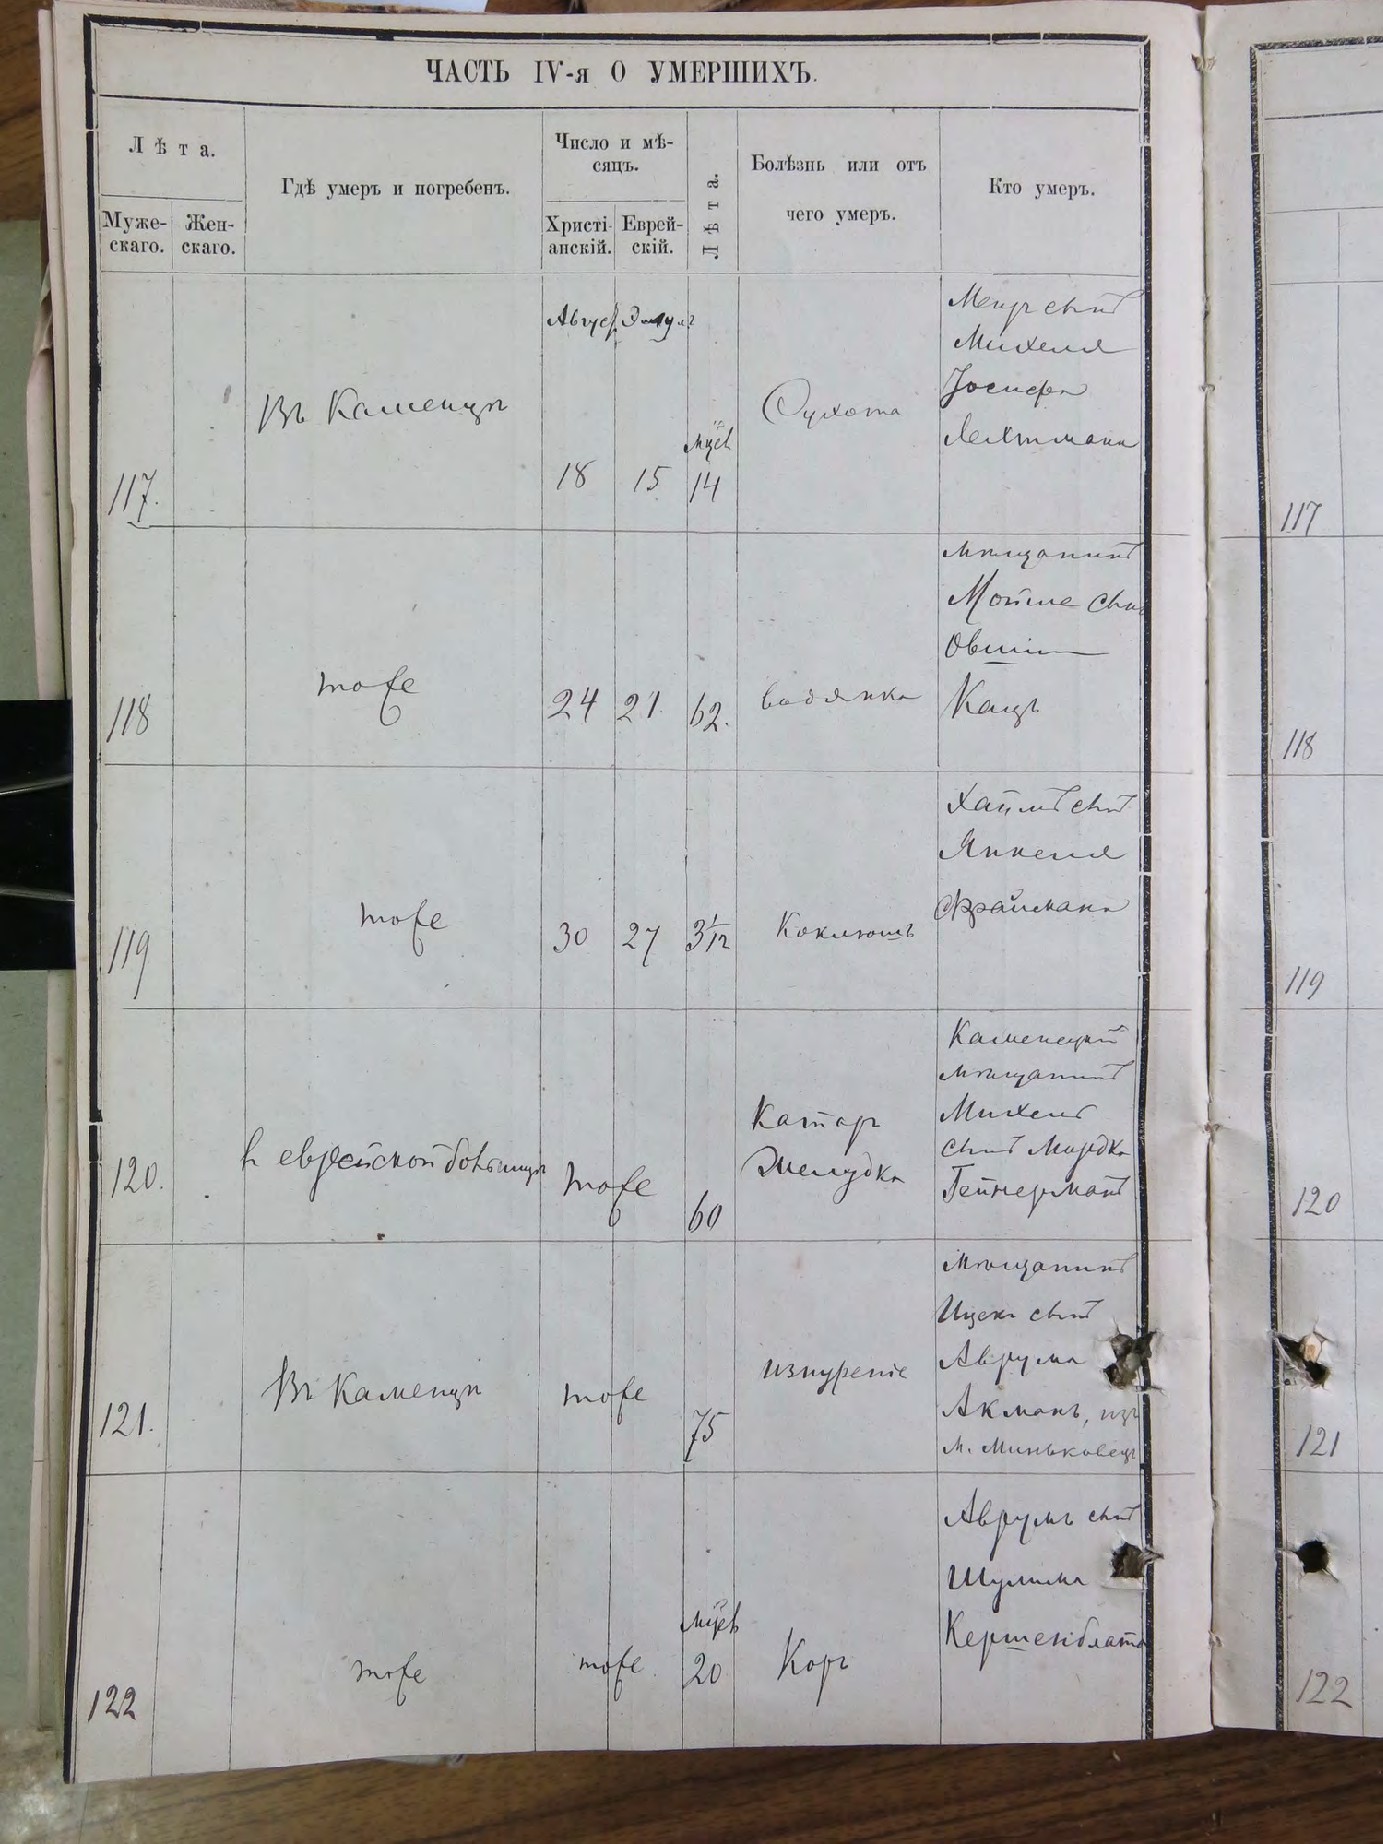 ЧАСТЬ IV-я О УМЕРШИХЪ.
Лѣта.
Муже-
скаго.
Жен-
скаго.
Гдѣ умеръ и погребенъ.
Число и мѣ-
сяцъ.
Христі-
анскій.
Еврей-
скій.
Лѣта.
Болѣзнь или отъ
чего умеръ.
Кто умеръ.
117.
Въ Каменцѣ
Август Элулъ
18
15
мѣсв
14
Сухота
Меир сынъ
Михеля
Іосифа
Лехтмана
117
118
тоже
24
21.
62.
водянка
мѣщанинъ
Мотие сынъ
Овшии
Кацъ
118
119
тоже
30
27
3 1/12
Коклюшъ
Хаимъ сынъ
Янкеля
Фраймана
119
120.
въ еврейской больницѣ
тоже
60
Катаръ
Желудка
Каменецкій
мѣщанинъ
Михель
сынъ Мордка
Гейнерманъ
120
121.
Въ Каменцѣ
тоже
75
изнуреніе
Мѣщанинъ
Ицекъ сынъ
Аврума
Акманъ, изъ
м. Миньковецъ
121
122
тоже
тоже.
мѣсв
20
Корь
Аврумъ сынъ
Шулима
Кершенблата
122